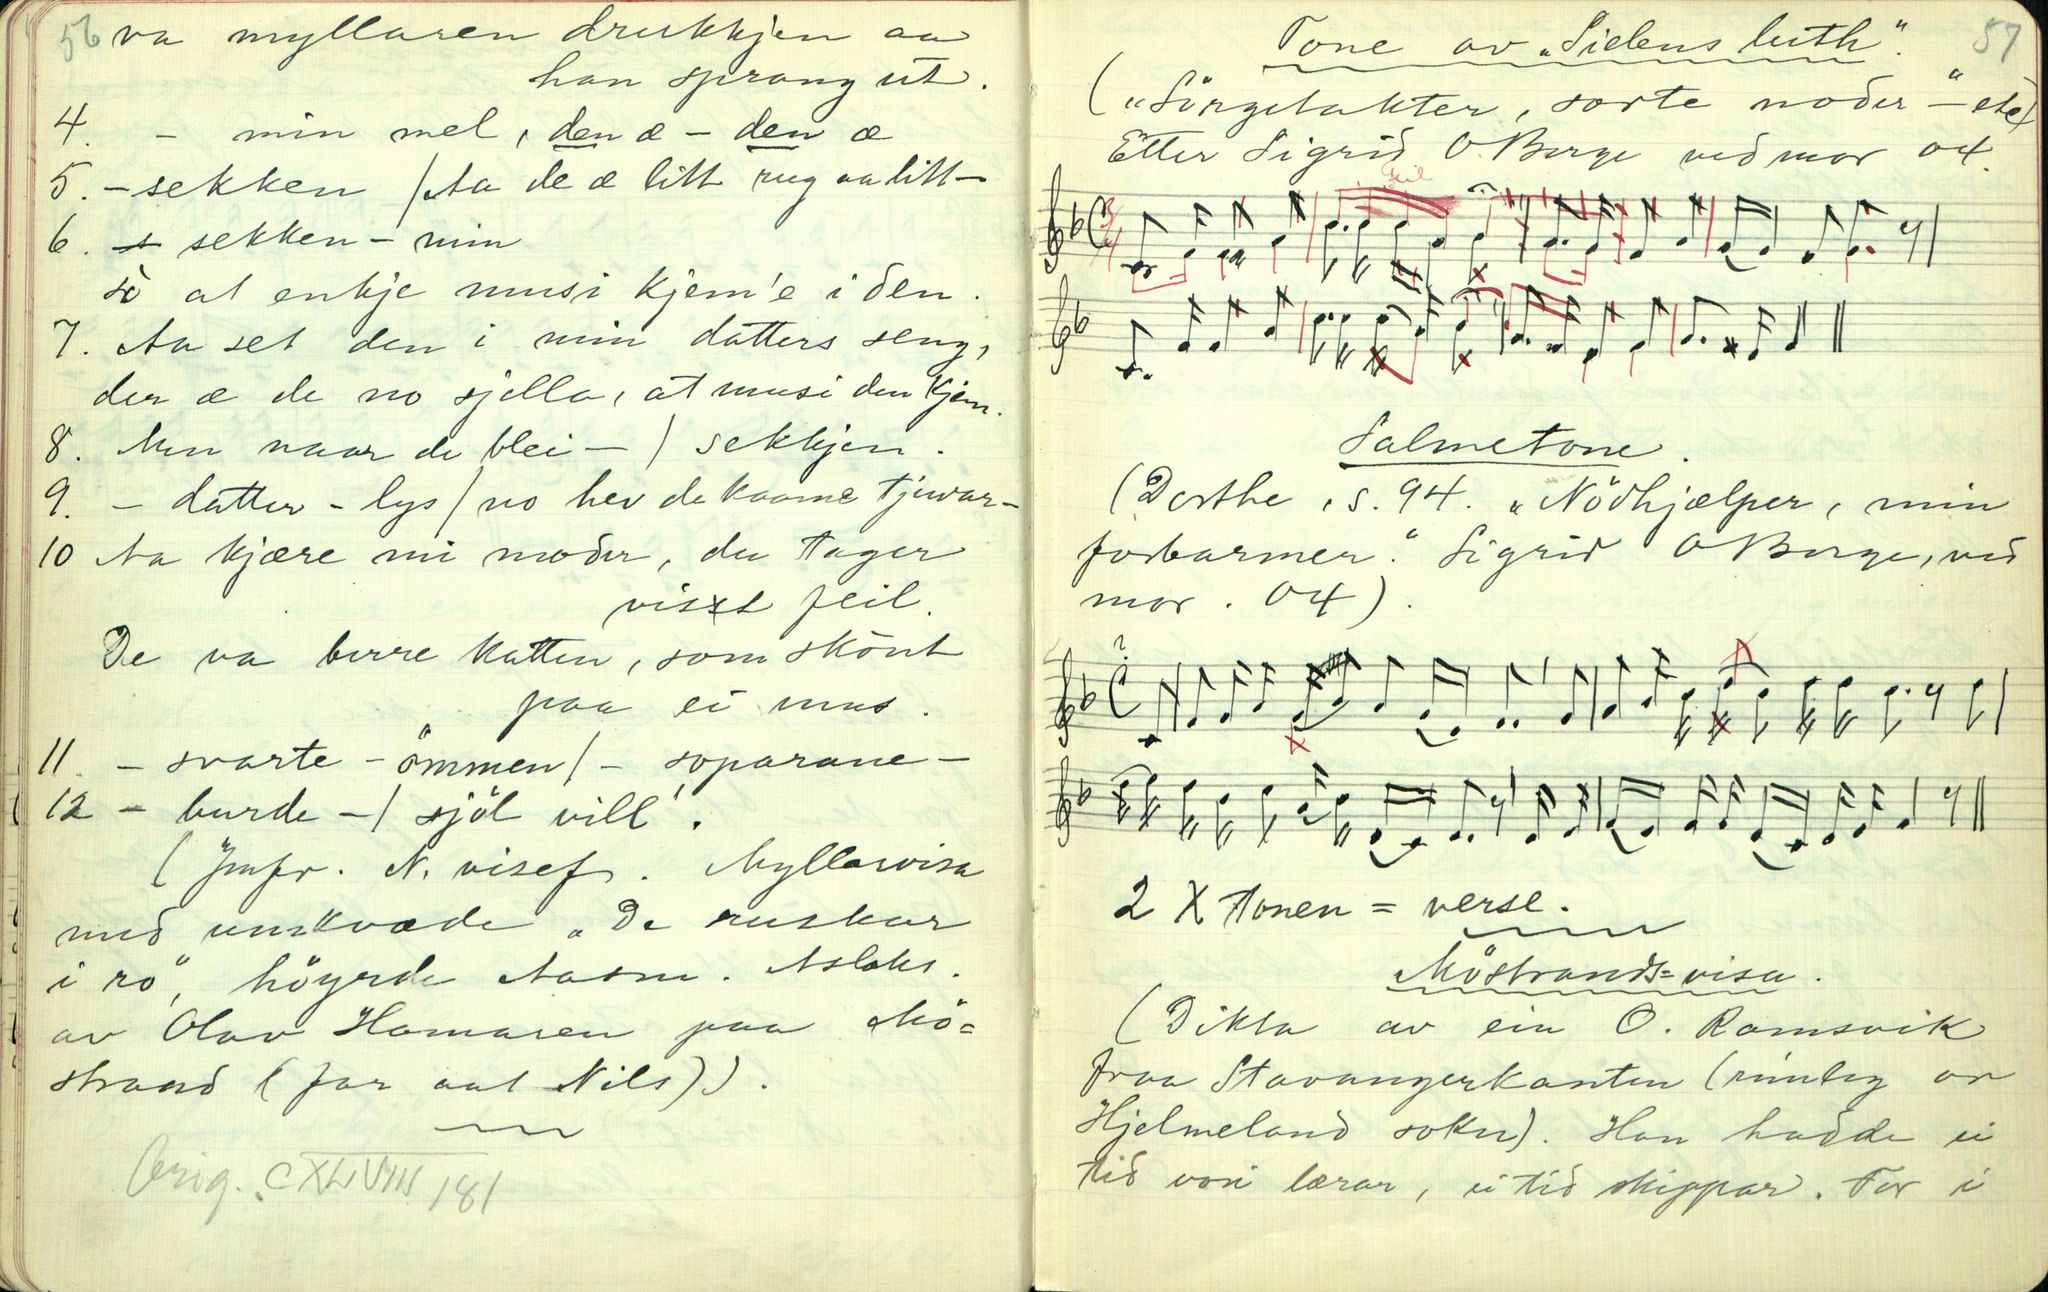 56 va myllaren drukkjen aa
han sprang ut.
4. - min mel, den æ - den æ
5. - sekken / Aa de æ litt rug aa litt -
6. sekken - min
so at enkje musi kjem'e i den.
7. Aa set den i min datters seng,
der æ de no sjella, at musi den kjem.
8. Men naar de blei - / sekkjen.
9. - datter - lys / no hev de kaame tjuvar -
10 Aa kjære mi moder, du tager
visst feil.
De va berre katten, som skönt
paa ei mus.
11. - svarte - ömmen / - soparane -
12 - burde - / sjöl vill'.
(Jmfr. N. visef. Myllarvisa
med umkvæde „De ruskar
i ro", höyrde Aasm. Aslaks.
av Olav Hamaren paa Mö=
strand (far aat Nils)).
Orig. CXLVIII 181
57
Tone av „Sielens luth".
(„Sörgetakter, sorte noder -" etc)
Etter Sigrid O Borge ved mor 04.
Salmetone.
(Dorthe, s. 94. „Nödhjælper, min
forbarmer." Sigrid O Borge, ved
mor. 04).
?
2 X tonen = verse.
Möstrands=visa.
(Dikta av ein O. Ramsvik
fraa Stavangerkanten (rimleg or
Hjelmeland sokn). Han hadde ei
tid vori lærar, ei tid skippar. For i